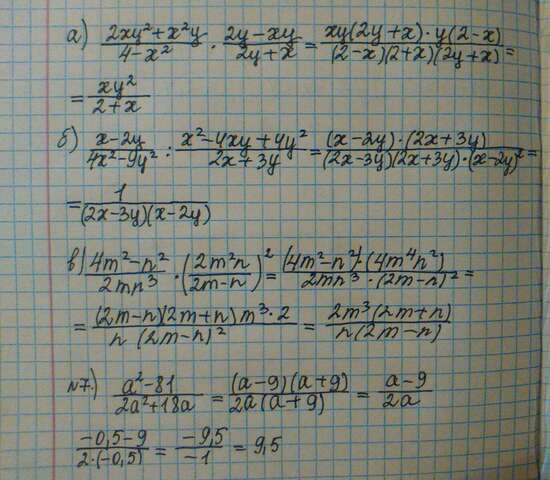 а) (2xy²+x²y)/(4-x²) · (2y-xy)/(2y+x) = (xy(2y+x)·y(2-x))/((2-x)(2+x)(2y+x)) =
= xy²/(2+x)
б) (x-2y)/(4x²-9y²) : (x²-4xy+4y²)/(2x+3y) = ((x-2y)·(2x+3y))/((2x-3y)(2x+3y)·(x-2y)²) =
= 1/((2x-3y)(x-2y))
в) (4m²-n²)/(2mn³) · (2m²n/(2m-n))² = ((4m²-n²)·(4m⁴n²))/(2mn³·(2m-n)²) =
= ((2m-n)(2m+n)m³·2)/(n(2m-n)²) = (2m³(2m+n))/(n(2m-n))
№7.) (a²-81)/(2a²+18a) = ((a-9)(a+9))/(2a(a+9)) = (a-9)/(2a)
(-0,5-9)/(2·(-0,5)) = (-9,5)/(-1) = 9,5